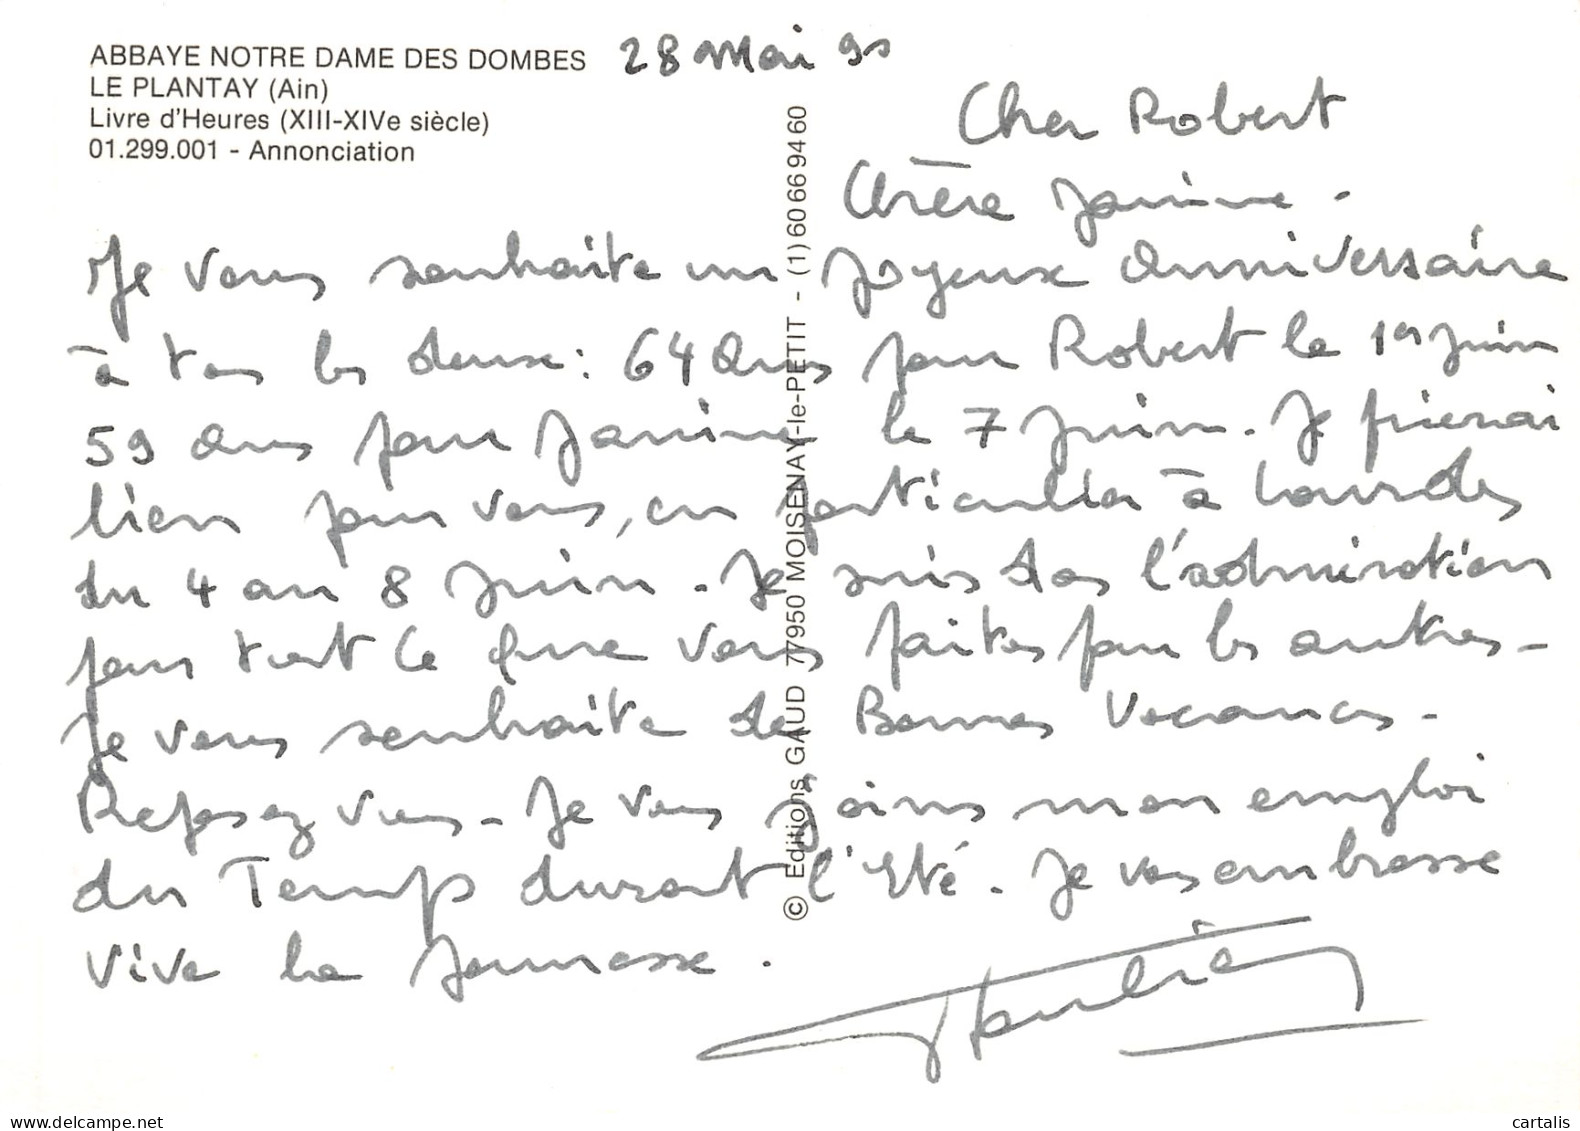 ABBAYE NOTRE DAME DES DOMBES
LE PLANTAY (Ain)
Livre d'Heures (XIII-XIVe siècle)
01.299.001 - Annonciation
28 Mai 90
Cher Robert
Chère Janine.
Je vous souhaite un Joyeux Anniversaire
à tous les deux : 64 ans pour Robert le 1er Juin
59 ans pour Janine le 7 Juin. Je prierai
bien pour vous, en particulier à Lourdes
du 4 au 8 Juin. Je suis ds l'admiration
pour tout ce que vous faites pour les autres -
Je vous souhaite de Bonnes Vacances -
Reposez vous - Je vous joins mon emploi
du Temps durant l'Eté. Je vous embrasse
Vive la Jeunesse.
© Editions GAUD 77950 MOISENAY-le-PETIT - (1) 60 66 94 60
cartalis